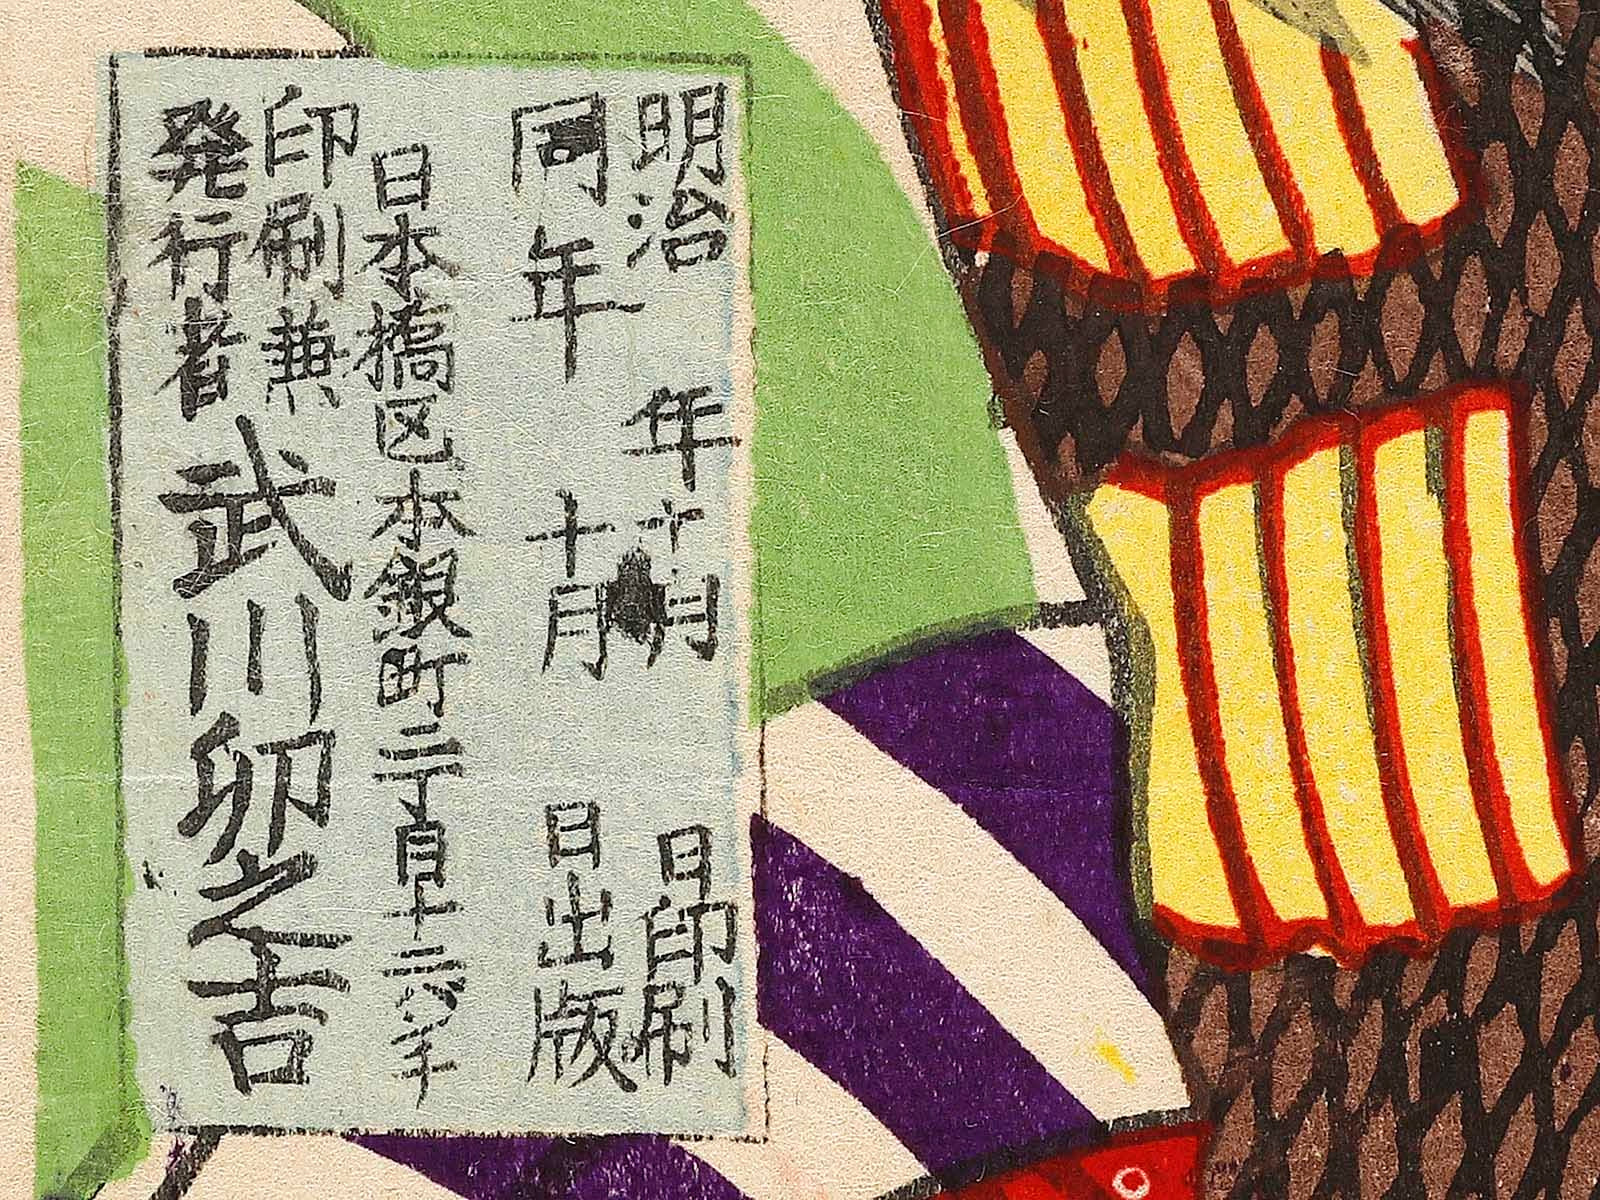 明治 年十月 日印刷
同年 十月 日出版
日本橋区本銀町二丁目十三番
印刷兼
発行者 武川卯之吉